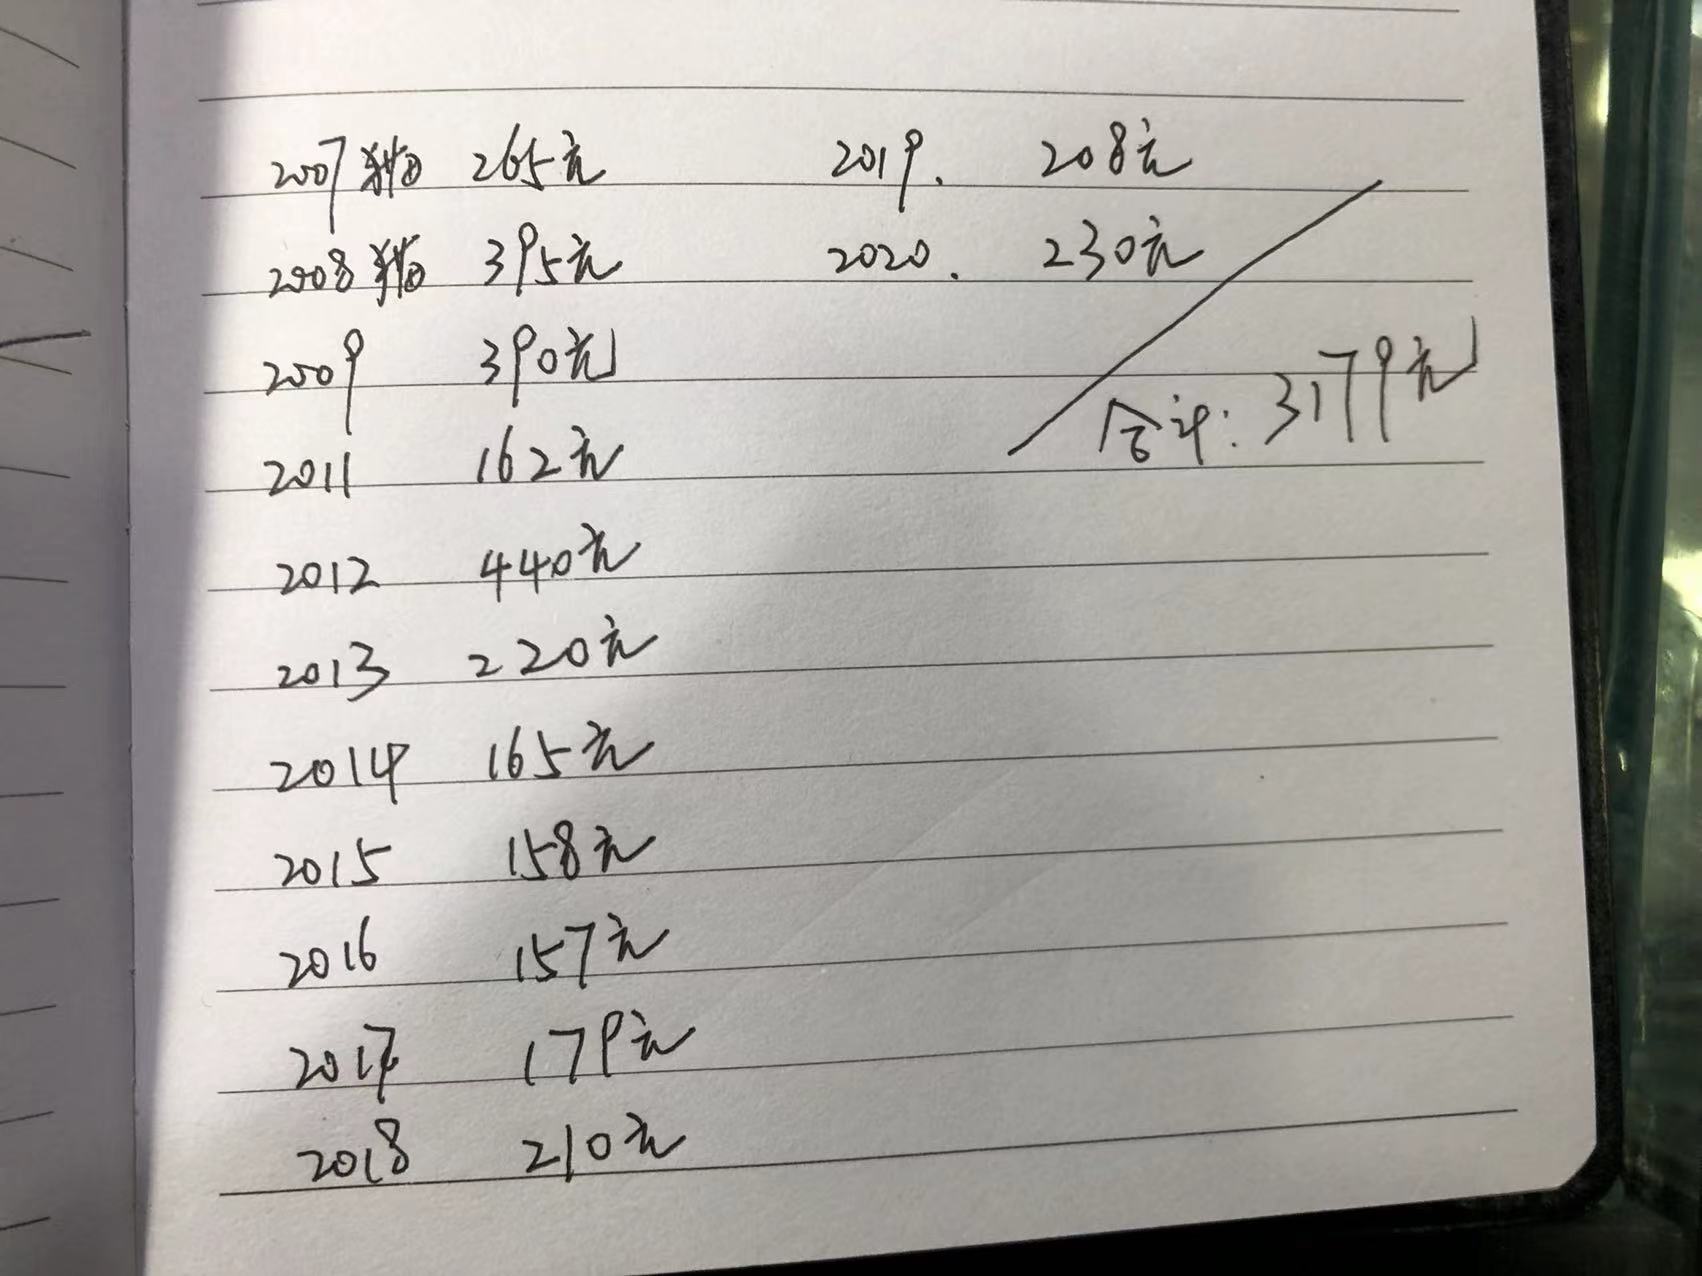 2007 265元
2008 395元
2009 390元
2011 162元
2012 440元
2013 220元
2014 165元
2015 158元
2016 157元
2017 179元
2018 210元
2019. 208元
2020. 230元
合计: 3179元